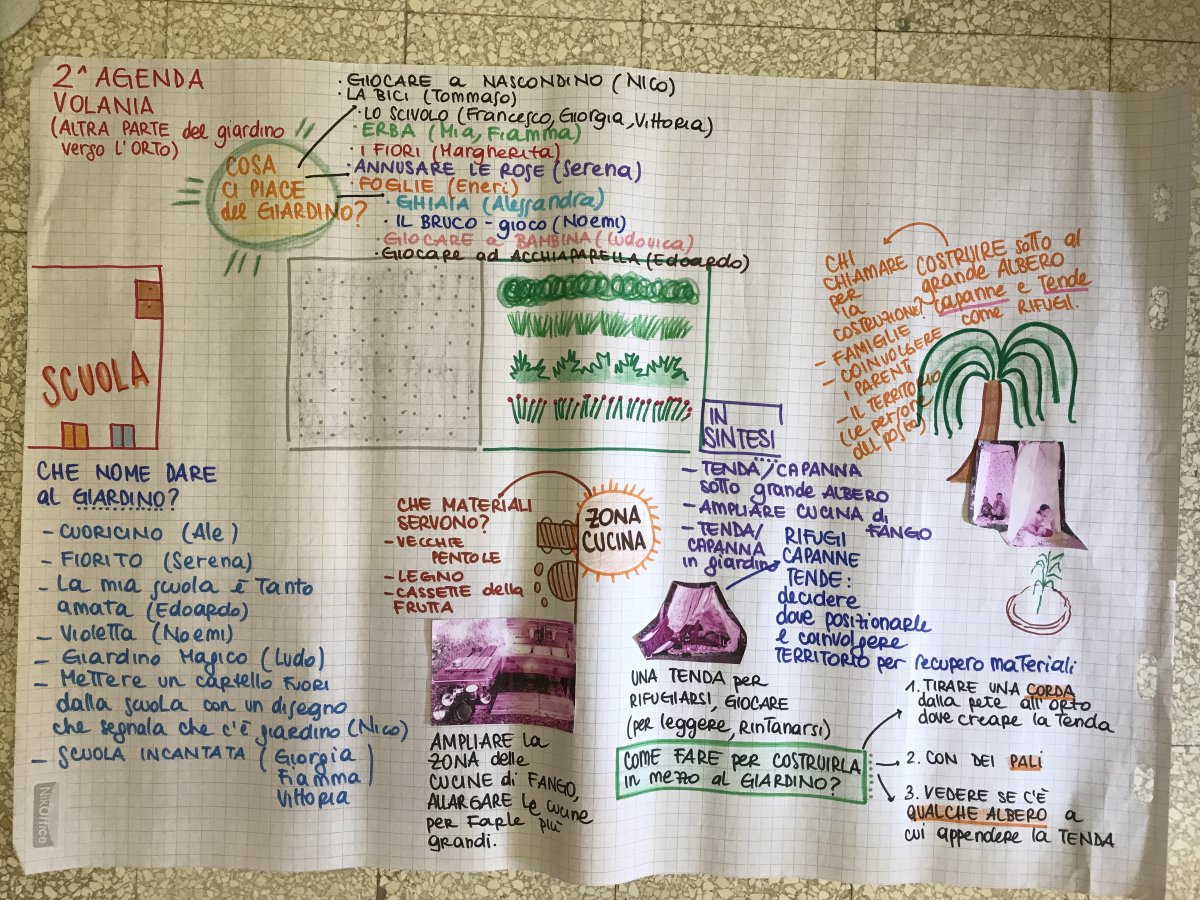 2^ AGENDA
VOLANIA
(ALTRA PARTE del giardino
verso L'ORTO)
COSA
CI PIACE
del GIARDINO?
· GIOCARE a NASCONDINO (NICO)
· LA BICI (Tommaso)
· LO SCIVOLO (Francesco, Giorgia, Vittoria)
· ERBA (Mia, Fiamma)
· I FIORI (Margherita)
· ANNUSARE LE ROSE (Serena)
· FOGLIE (Eneri)
· GHIAIA (Alessandra)
· IL BRUCO - gioco (Noemi)
· GIOCARE a BAMBINA (Ludovica)
· GIOCARE ad ACCHIAPARELLA (Edoardo)
SCUOLA
CHE NOME DARE
al GIARDINO?
- CUORICINO (Ale)
- FIORITO (Serena)
- La mia scuola è Tanto
amata (Edoardo)
- Violetta (Noemi)
- Giardino Magico (Ludo)
- Mettere un cartello fuori
dalla scuola con un disegno
che segnala che c'è giardino (Nico)
- SCUOLA INCANTATA (Giorgia
Fiamma
Vittoria)
NiKOffice
CHE MATERIALI
SERVONO?
- VECCHIE
PENTOLE
- LEGNO
- CASSETTE della
FRUTTA
ZONA
CUCINA
AMPLIARE la
ZONA delle
CUCINE di FANGO,
ALLARGARE le cucine
per farle più
grandi.
IN
SINTESI
- TENDA/CAPANNA
sotto grande ALBERO
- AMPLIARE CUCINA di
FANGO
- TENDA/
CAPANNA
in giardino
RIFUGI
CAPANNE
TENDE:
decidere
dove posizionarle
e coinvolgere
TERRITORIO per recupero maTeriali
UNA TENDA per
RIFUGIARSI, GIOCARE
(per leggere, RINTANARSI)
COME FARE per COSTRUIRLA
in mezzo al GIARDINO?
1. TIRARE UNA CORDA
dalla rete all'orto
dove creare la Tenda
2. CON DEI PALI
3. VEDERE SE C'È
QUALCHE ALBERO a
cui appendere la TENDA
COSTRUIRE sotto al
grande ALBERO
capanne e Tende
come RIFUGI.
CHI
CHIAMARE
per
la
COSTRUZIONE?
- FAMIGLIE
- COINVOLGERE
i PARENTI
- IL TERRITORIO
(le persone
del posto)